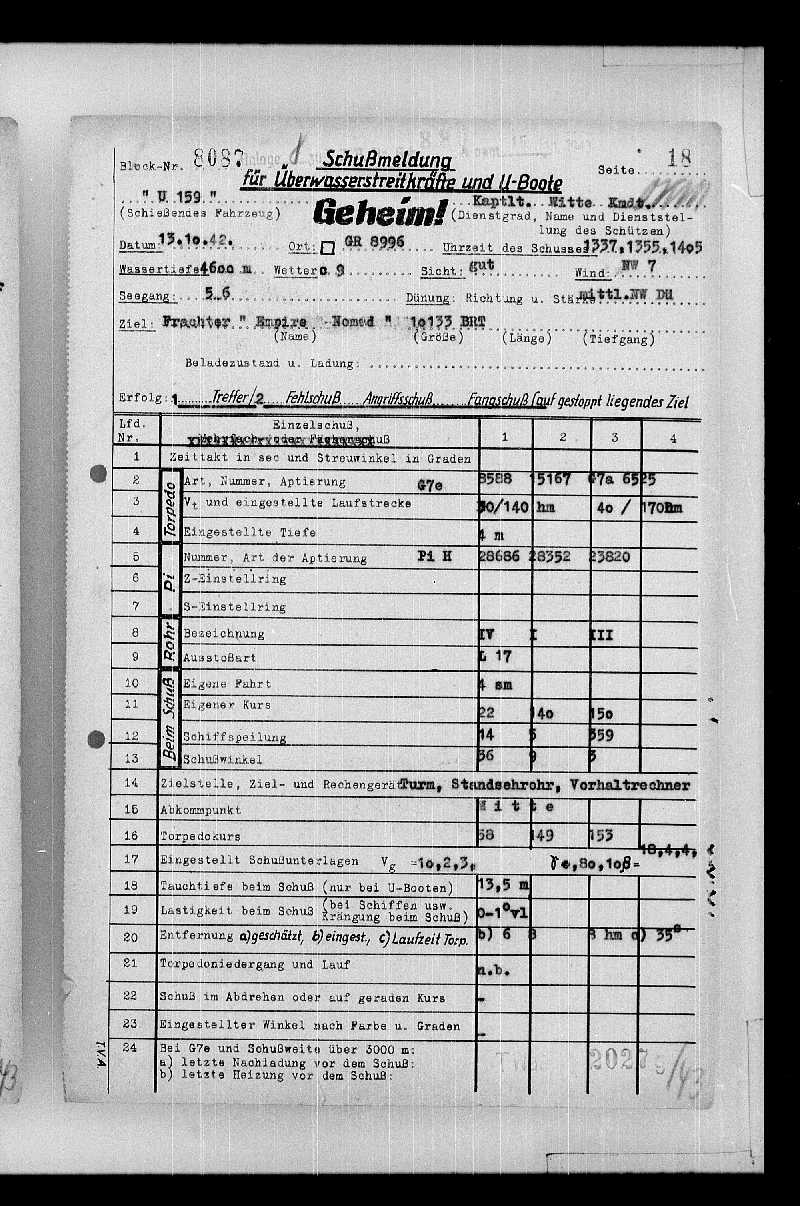 Block-Nr. 8087 Schußmeldung Seite 18
für Überwasserstreitkräfte und U-Boote
" U 159 " Geheim! Kaptlt. Witte Kmdt.
(Schießendes Fahrzeug) (Dienstgrad, Name und Dienststel-
lung des Schützen)
Datum: 13.10.42. Ort: GR 8996 Uhrzeit des Schusses 1337,1355,14o5
Wassertiefe 46oo m Wetter o. 9 Sicht: gut Wind: NW 7
Seegang: 5.6 Dünung: Richtung u. Stärke mittl.NW DÜ
Ziel: Frachter " Empire Nomod " 1o133 BRT
(Name) (Größe) (Länge) (Tiefgang)
Beladezustand u. Ladung:
Erfolg: 1 Treffer/2 Fehlschuß Angriffsschuß Fangschuß (auf gestoppt liegendes Ziel
Lfd. Nr. Einzelschuß, 1 2 3 4
Mehrfach- oder Fächerschuß
1 Zeittakt in sec und Streuwinkel in Graden
Torpedo
2 Art, Nummer, Aptierung G7e 8588 15167 G7a 6525
3 Vt und eingestellte Laufstrecke 30/140 hm 4o / 170hm
4 Eingestellte Tiefe 4 m
Pi
5 Nummer, Art der Aptierung Pi H 28686 28352 23820
6 Z-Einstellring
7 S-Einstellring
Rohr
8 Bezeichnung IV I III
9 Ausstoßart L 17
Beim Schuß
10 Eigene Fahrt 4 sm
11 Eigener Kurs 22 14o 15o
12 Schiffspeilung 14 5 359
13 Schußwinkel 36 9 3
14 Zielstelle, Ziel- und Rechengerät Turm, Standsehrohr, Vorhaltrechner
15 Abkommpunkt M i t t e
16 Torpedokurs 58 149 153
17 Eingestellt Schußunterlagen Vg =1o,2,3, γ e,8o,1oß= 18,4,4,
18 Tauchtiefe beim Schuß (nur bei U-Booten) 13,5 m
19 Lastigkeit beim Schuß (bei Schiffen usw. Krängung beim Schuß) 0-1° vl
20 Entfernung a) geschätzt, b) eingest., c) Laufzeit Torp. b) 6 8 8 hm c) 35s
21 Torpedoniedergang und Lauf n.b.
22 Schuß im Abdrehen oder auf geraden Kurs -
23 Eingestellter Winkel nach Farbe u. Graden -
24 Bei G7e und Schußweite über 3000 m:
a) letzte Nachladung vor dem Schuß:
b) letzte Heizung vor dem Schuß:
TVA
2027
/43